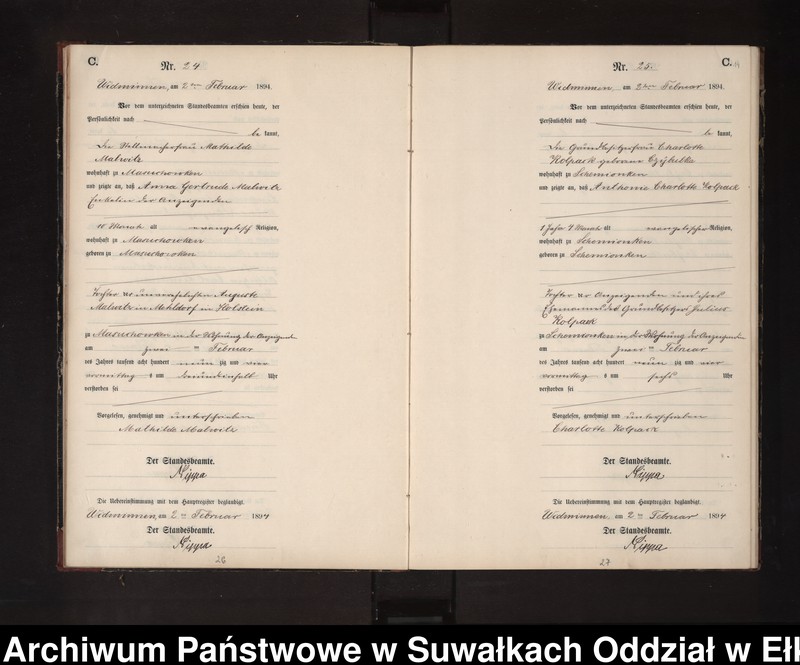 C.
Nr. 24
Widminnen, am 2ten Februar 1894.
Vor dem unterzeichneten Standesbeamten erschien heute, der
Persönlichkeit nach
be kannt,
die Stellmacherfrau Mathilde
Malwitz
wohnhaft zu Masuchowken
und zeigte an, daß Anna Gertrude Malwitz
Enkelin der Anzeigenden
alt evangelisch Religion,
wohnhaft zu Masuchowken
geboren zu Masuchowken
Tochter der unverehelichten Auguste
Malwitz in Meldorf in Holstein
zu Masuchowken in der Wohnung der Anzeigenden
am zwei ten Februar
des Jahres tausend acht hundert neun zig und vier
vormittags um Uhr
verstorben sei
Vorgelesen, genehmigt und unterschrieben
Mathilde Malwitz
Der Standesbeamte.
Nippa
Die Uebereinstimmung mit dem Hauptregister beglaubigt.
Widminnen, am 2ten Februar 1894
Der Standesbeamte.
Nippa
26
C.
Nr. 25.
Widminnen, am 2ten Februar 1894.
Vor dem unterzeichneten Standesbeamten erschien heute, der
Persönlichkeit nach
be kannt,
die Grundbesitzerfrau Charlotte
Kolpack geborene
wohnhaft zu Schemionken
und zeigte an, daß Charlotte Kolpack
1 Jahr 7 Monat alt evangelischer Religion,
wohnhaft zu Schemionken
geboren zu Schemionken
Tochter der Anzeigenden und ihres
Ehemannes des Grundbesitzers Julius
Kolpack
zu Schemionken in der Wohnung der Anzeigenden
am zwei ten Februar
des Jahres tausend acht hundert neun zig und vier
vormittags um Uhr
verstorben sei
Vorgelesen, genehmigt und unterschrieben
Charlotte Kolpack
Der Standesbeamte.
Nippa
Die Uebereinstimmung mit dem Hauptregister beglaubigt.
Widminnen, am 2ten Februar 1894
Der Standesbeamte.
Nippa
27
Archiwum Państwowe w Suwałkach Oddział w Ełk